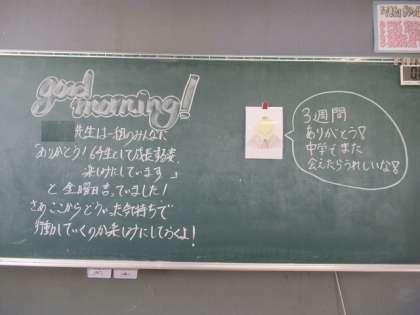 good
morning!
先生は一組のみんなに
「ありがとう！6年生として成長した姿、
楽しみにしています」
と金曜日言っていました！
さあここからどういった気持ちで
行動していくのか楽しみにしておくよ！
3週間
ありがとう！
中学でまた
会えたらうれしいな！